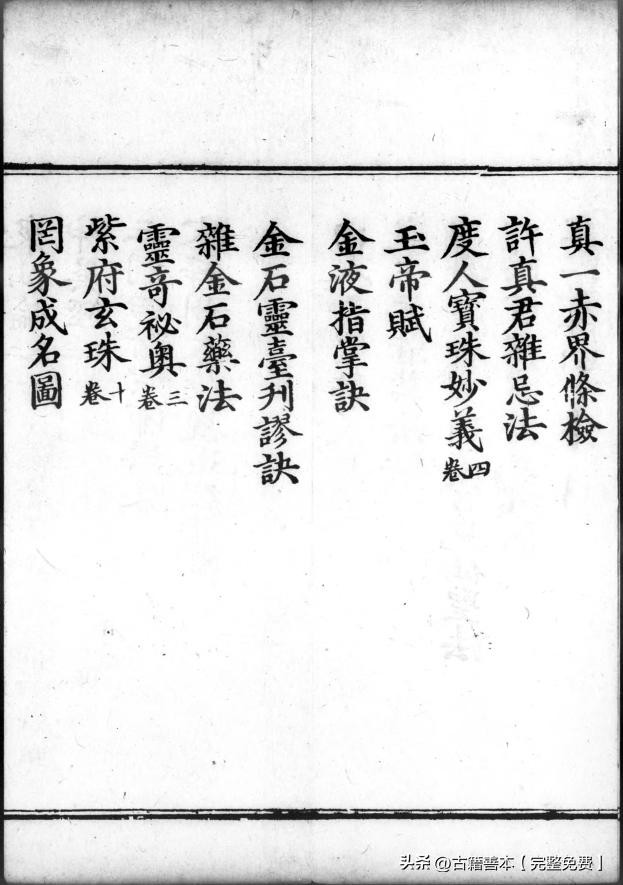 真一赤界條檢
許真君雜忌法
度人寶珠妙義四卷
玉帝賦
金液指掌訣
金石靈臺刋謬訣
雜金石藥法
靈竒祕奥三卷
紫府玄珠十卷
罔象成名圖
头条 @古籍善本【完整免费】